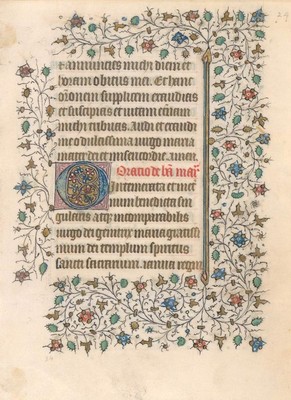 et annuncies michi diem et
horam obitus mei. Et hanc
orōnem supplicem exaudias
et suscipias et vitam eternā
michi tribuas. Audi et exaudi
me dulcissima virgo maria
mater dei et misericordie. amen
Oratio de btā mar̄
O intemerata et in et
num benedicta sin
gularis atqȝ incomparabilis
virgo dei genitrix maria gratissi
mum dei templum spiritus
sancti sacrarium ianua regni